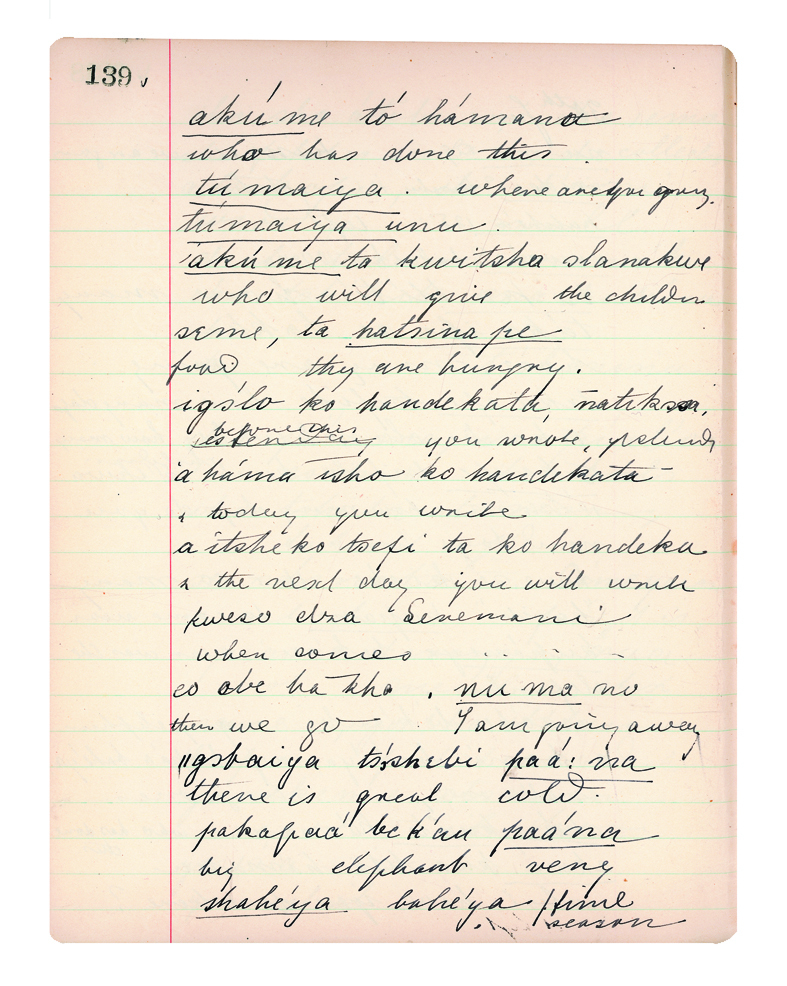 139
akú me tó hámana
who has done this.
tú maiya. where are you going.
tú maiya unu.
'akú me ta kwitsha slanakwe
who will give the children
seme, ta hatsina pe
food they are hungry.
ko handekata,
before this
yesterday you wrote,
'a háma isho ko handekata
today you write
a itshe ko tsefi ta ko handeka
the next day you will write
kweso dza Seremani
when comes
eo obe ha kho. nu ma no
then we go I am going away
tsishebi paá: na
there is great cold.
pakapaá bek'au paá'na
big elephant very
shahé'ya bahé'ya / time
season